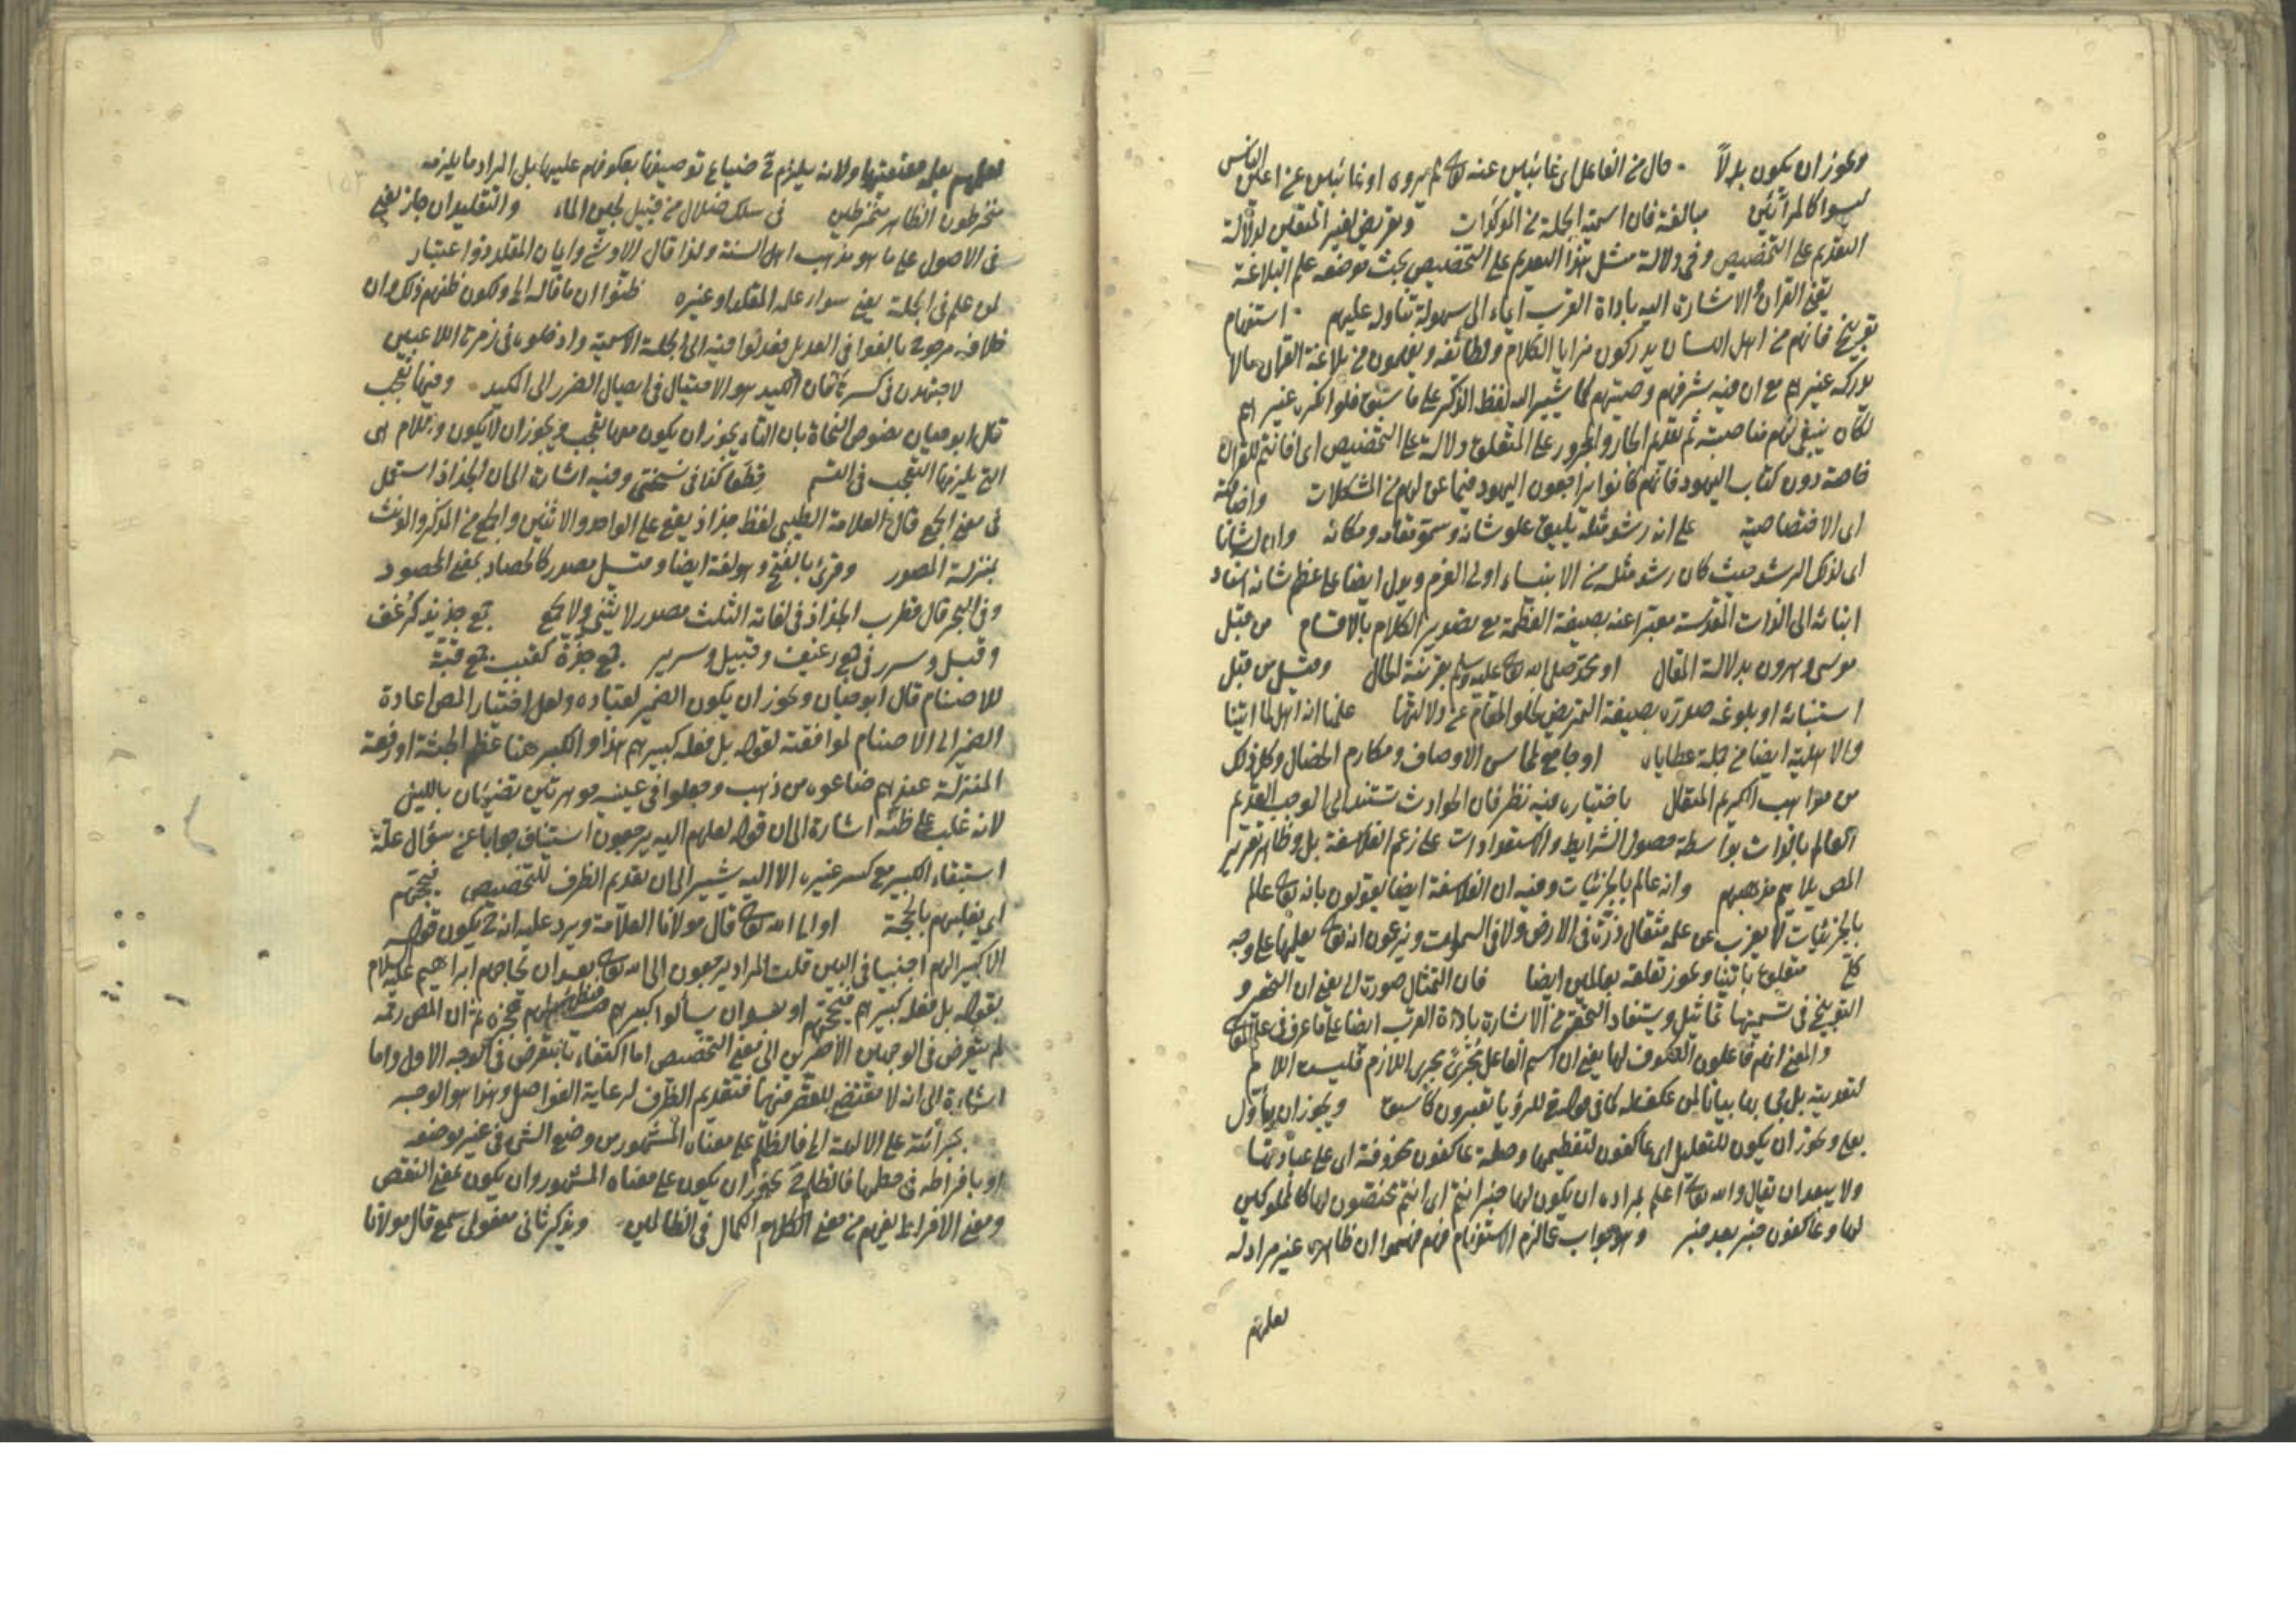 ويجوز ان يكون بدلاً حال من الفاعل اى غائبين عنه تع لم يروه او غائبين عن اعين الناس
ليسوا كالمرائين مبالغة فان اسمية الجملة من المؤكدات وتعريض لغير المتقين لدلالة
التقديم على التخصيص وفى دلالة مثل هذا التقديم على التخصيص بحث موضعه علم البلاغة
يعنى القرآن والاشارة اليه باداة القرب ايماء الى سهولة تناوله عليهم استفهام
توبيخ فانهم من اهل اللسان يدركون مزايا الكلام ولطائفه ويفهمون من بلاغة القرآن مالا
يدركه غيرهم مع ان فيه شرفهم وصيتهم كما يشير اليه لفظ الذكر على ما سبق فلو انكره غيرهم
لكان ينبغى لهم مناصبته ثم تقديم الجار والمجرور على المتعلق دلالة على التخصيص اى افانتم للقرآن
خاصة دون كتاب اليهود فانهم كانوا يراجعون اليهود فيما عن لهم من المشكلات واضافته
اى الاختصاصية على انه رشد مثله يليق علو شانه وسمو مقامه ومكانه وان له شانا
اى لذلك الرشد حيث كان رشد مثله من الانبياء اولى العزم ويدل ايضا على عظم شانه اسناد
ايتائه الى الذات المقدسة معبرا عنه بصيغة العظمة مع تصدير الكلام بالاقسام من قبل
موسى وهرون بدلالة المقال او محمد صلى الله تع عليه وسلم بقرينة الحال وقيل من قبل
استنبائه او بلوغه صدره بصيغة التمريض لخلو المقام عن دلالتها علمنا انه اهل لما اتينا
والاهلية ايضا من جملة عطاياه او جامع لمحاسن الاوصاف ومكارم الخصال وكل ذلك
من مواهب الكريم المتعال باختياره فيه نظر فان الحوادث تستند الى الموجب القديم
العالم بالذات بواسطة حصول الشرايط والاستعدادات على زعم الفلاسفة بل وظاهر تقرير
المص يلايم مذهبهم وانه عالم بالجزئيات وفيه ان الفلاسفة ايضا يقولون بانه تع عالم
بالجزئيات لا يعزب عن علمه مثقال ذرة فى الارض ولا فى السموات ويزعمون انه تع يعلمها على وجه
كلى متعلق باتينا ويجوز تعلقه بعالمين ايضا فان التمثال صورة الخ يعنى ان التحقير و
التوبيخ فى تسميتها تماثيل ويستفاد التحقير من الاشارة باداة القرب ايضا على ما عرف فى علم المعانى
والمعنى انهم فاعلون العكوف لها يعنى ان اسم الفاعل مُجْرًى مجرى اللازم فليست اللام
لتعديته بل جئ بها بيانا لمن عكف له كما فى قوله للرؤيا تعبرون كما سبق ويجوز ان يأول
بعلى ويجوز ان يكون للتعليل اى عاكفون لتعظيمها وصلة عاكفون محذوفة اى على عبادتها
ولا يبعد ان يقال والله تع اعلم بمراده ان يكون لها خبر انتم اى انتم مختصون لها كالمملوكين
لها وعاكفون خبر بعد خبر وهو جواب عما لزم الاستفهام فهم فهموا ان ظاهره غير مراد له
لعلهم
لعلهم بعله حقيقتها ولانه يلزم ح ضياع توصيفها بعكوفهم عليها بل المراد ما يلزمه
منخرطون الظاهر منخرطين فى سلك ضلال من قبيل لجين الماء والتقليد ان جاز يعنى
فى الاصول على ما هو مذهب اهل السنة ولذا قال الاوشى وايمان المقلد ذو اعتبار
لمن علم فى الجملة يعنى سواء علمه المقلد او غيره ظنوا ان ما قاله الخ ولكون ظنهم ذلك وان
خلافه مرجوح بالغوا فى العديل فعدلوا فيه الى الجملة الاسمية وادخلوه فى زمرة اللاعبين
لاجتهدن فى كسرها فان الكيد هو الاحتيال فى ايصال الضرر الى المكيد وفيها تعجب
قال ابو حيان نصوص النحاة بان التاء يجوز ان يكون معها تعجب ويجوز ان لا يكون واللام هى
التى يلزمها التعجب فى القسم قِطَعًا كذا فى نسختى وفيه اشارة الى ان الجذاذ استعمل
فى معنى الجمع قال العلامة الطيبى لفظ جذاذ يقع على الواحد والاثنين والجمع من المذكر والمونث
بمنزلة المصدر وقرئ بالفتح وهو لغة ايضا وقيل مصدر كالحصاد بمعنى المحصود
وفى البحر قال قطرب الجذاذ فى لغاته الثلث مصدر لا يثنى ولا يجمع جمع جذيذ كرُغف
وقبل وسرر فى جمع رغيف وقبيل وسرير جمع جُذّة كقبب جمع قبّة
للاصنام قال ابو حيان ويجوز ان يكون الضمير لعباده ولعل اختيار المص اعادة
الضمير الى الاصنام لموافقته لقوله بل فعله كبيرهم هذا والكبير هنا عظم الجثة او رفعة
المنزلة عندهم صاغوه من ذهب وجعلوا فى عينيه جوهرتين تضيئان بالليل
لانه غلب على ظنه اشارة الى ان قوله لعلهم اليه يرجعون استيناف جوابا عن سؤال علّة
استبقاء الكبير مع كسر غيره الا اليه يشير الى ان تقديم الظرف للتخصيص فيحجّهم
اى يغلبهم بالحجة او الى الله تع قال مولانا العلامة ويرد عليه انه ح يكون قوله
الا كبيرا لهم اجنبيا فى البين قلت المراد يرجعون الى الله تع بعد ان يحاجهم ابراهيم عليه السلام
بقوله بل فعله كبيرهم فيحجهم او بعد ان يسألوا كبيرهم فيظهر لهم عجزه ثم ان المص رحمه
لم يتعرض فى الوجهين الاخيرين الى معنى التخصيص اما اكتفاء بما يتعرض فى الوجه الاول واما
اشارة الى انه لا مقتضى للقصر فيهما فتقديم الظرف لرعاية الفواصل وهذا هو الوجه
بجرأته على الالهة الخ فالظلم على معناه المشهور من وضع الشئ فى غير موضعه
او بافراطه فى حطمها فالظلم ح يجوز ان يكون على معناه المشهور وان يكون بمعنى النقص
ومعنى الافراط يفهم من معنى الكلام الكمال فى الظالمين ويذكر ثانى مفعولى سمع قال مولانا